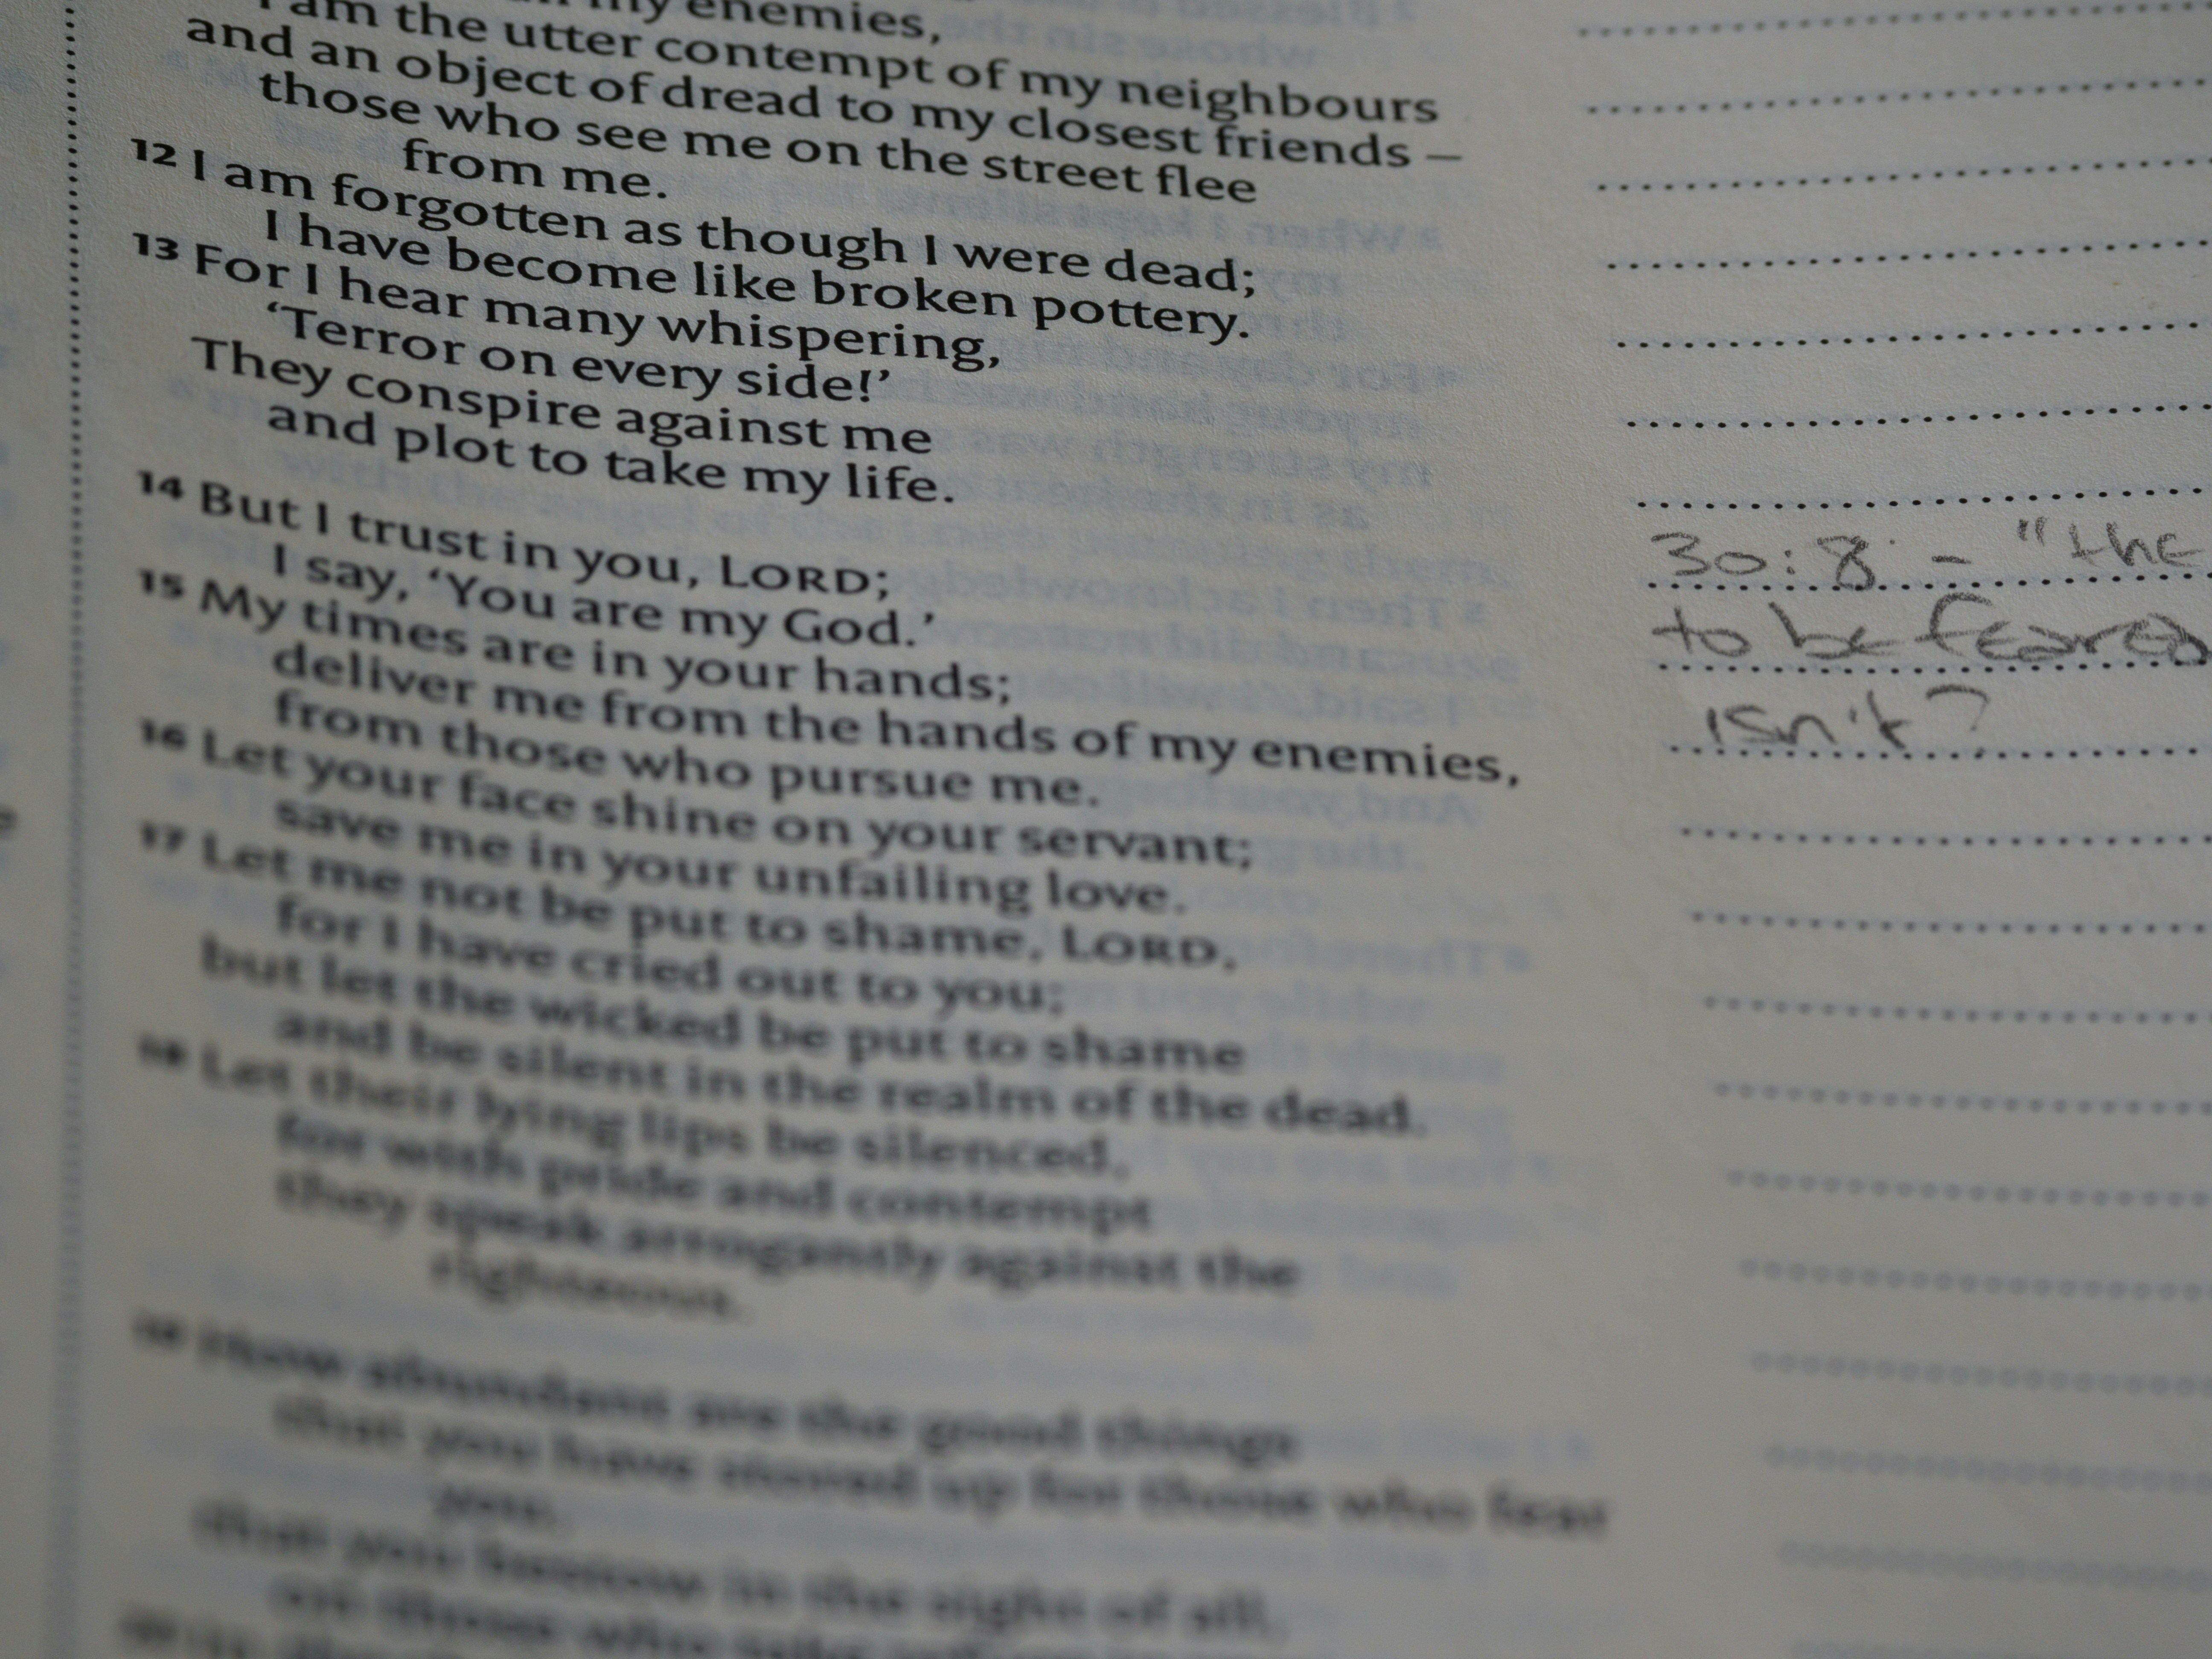 my enemies,
I am the utter contempt of my neighbours
and an object of dread to my closest friends –
those who see me on the street flee
from me.
12 I am forgotten as though I were dead;
I have become like broken pottery.
13 For I hear many whispering,
‘Terror on every side!’
They conspire against me
and plot to take my life.
14 But I trust in you, LORD;
I say, ‘You are my God.’
15 My times are in your hands;
deliver me from the hands of my enemies,
from those who pursue me.
16 Let your face shine on your servant;
save me in your unfailing love.
17 Let me not be put to shame, LORD,
for I have cried out to you;
but let the wicked be put to shame
and be silent in the realm of the dead.
18 Let their lying lips be silenced,
for with pride and contempt
they speak arrogantly against the
righteous.
19 How abundant are the good things
that you have stored up for those who fear
you,
that you bestow in the sight of all,
on those who take
30:8 - "the
to be feared
isn't?